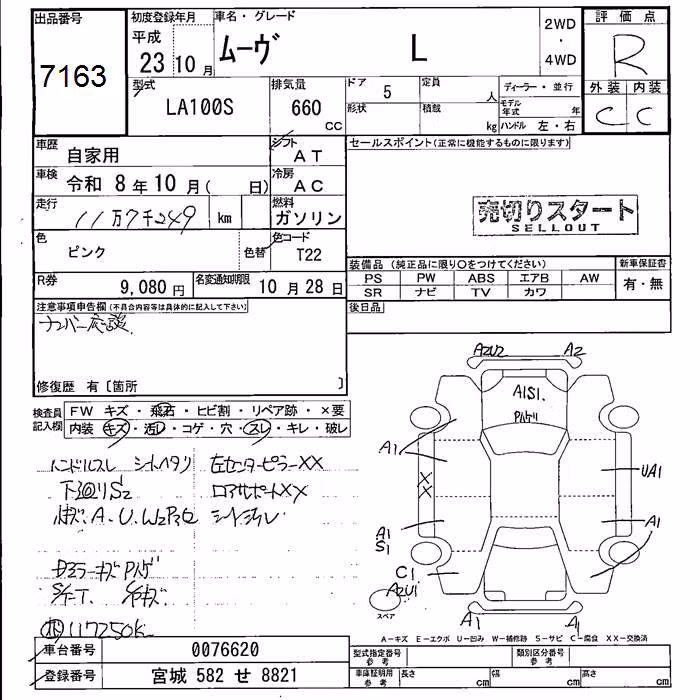 出品番号 初度登録年月 車名・グレード 2WD ・ 4WD 評価点
7163 平成 23 10月 ムーヴ L R
型式 排気量 ドア 定員 ディーラー・並行 外装 内装
LA100S 660 cc 5 人 C C
形状 積載 kg モデル年式 年
ハンドル 左・右
車歴 自家用 シフト AT セールスポイント(正常に機能するものに限ります)
車検 令和 8年10月( 日) 冷房 AC
走行 11万7千249 km 燃料 ガソリン 売切りスタート
SELLOUT
色 ピンク 色替 色コード T22
装備品 (純正品に限り○をつけてください) 新車保証書
PS PW ABS エアB AW 有・無
SR ナビ TV カワ
R券 9,080円 名変通知期限 10月28日
後日品
注意事項申告欄(不具合内容等は具体的に記入して下さい)
ナンバー応談
修復歴 有〔箇所 〕
検査員記入欄 FW キズ・飛石・ヒビ割・リペア跡・×要
内装 キズ・汚レ・コゲ・穴・スレ・キレ・破レ
ハンドルスレ シートヘタリ 左センターピラーXX
下廻りS2 ロアサポートXX
A.U.W2P3 シートシワレ
ドアミラーキズ Pハゲ
117250K
AZU2 A2
A1S1
Pハゲリ
A1
XX
UA1
A1
S1
A1
C1
AZU1
スペア
A1 A1
A－キズ E－エクボ U－凹み W－補修跡 S－サビ C－腐食 XX－交換済
車台番号 0076620 型式指定番号 参考 類別区分番号 参考
登録番号 宮城 582 せ 8821 車庫証明用 参考 長さ cm 幅 cm 高さ cm